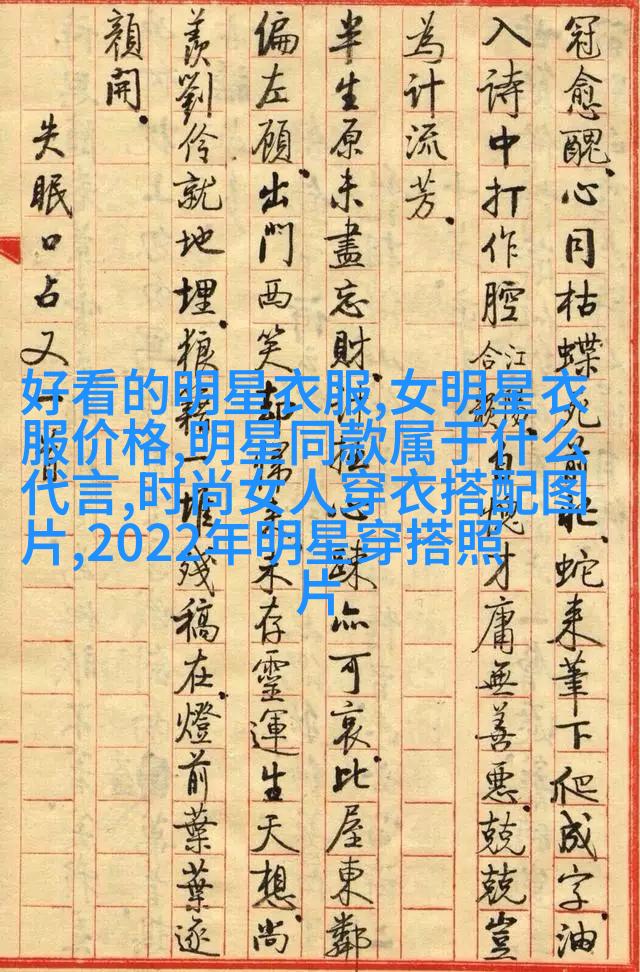 冠愈醜。心同枯蝶死前、蛇来筆下爬成字。油
入詩中打作腔江合韻。自愧才庸無善惡。兢兢豈
為計流芳。
半生原未盡忘財。計拙心疎亦可哀。比屋東鄰
偏左顧。出門西笑未存靈運生天想。尚
羨劉伶就地埋。狼籍一堆殘稿在。燈前葉葉逐
顏開。
失眠口占又一
好看的明星衣服,女明星衣
服价格,明星同款属于什么
代言,时尚女人穿衣搭配图
片,2022年明星穿搭照
片